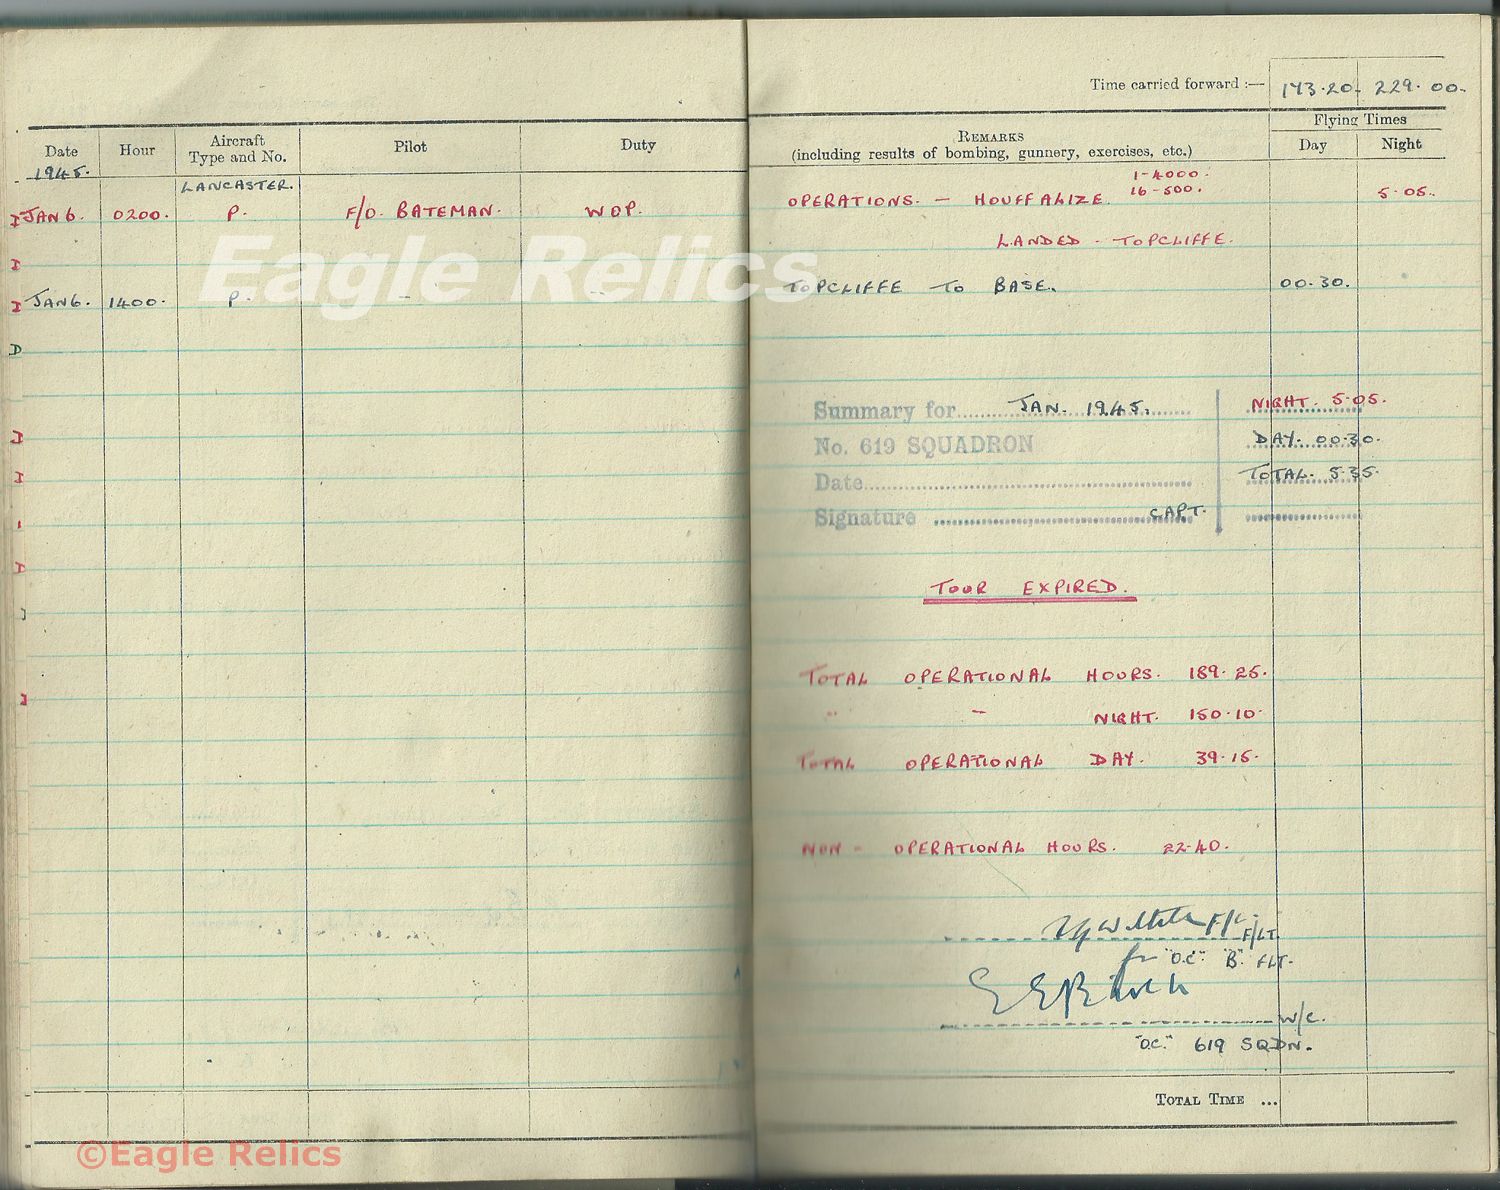 Time carried forward :— 143.20. 229.00.
Date Hour Aircraft Type and No. Pilot Duty REMARKS (including results of bombing, gunnery, exercises, etc.) Flying Times Day Night
1945.
LANCASTER.
JAN 6. 0200. P. F/O. BATEMAN. WOP. OPERATIONS. — HOUFFALIZE. 1-4000. 16-500. 5.05.
LANDED - TOPCLIFFE.
JAN 6. 1400. P. - - TOPCLIFFE TO BASE. 00.30.
Eagle Relics
Summary for JAN. 1945. NIGHT. 5.05.
No. 619 SQUADRON DAY. 00.30.
Date TOTAL. 5.35.
Signature CAPT.
TOUR EXPIRED.
TOTAL OPERATIONAL HOURS. 189.25.
" - NIGHT. 150.10.
TOTAL OPERATIONAL DAY. 39.15.
NON - OPERATIONAL HOURS. 22.40.
F/L F/LT.
for "O.C." "B" FLT.
W/C.
"O.C." 619 SQDN.
TOTAL TIME ...
©Eagle Relics